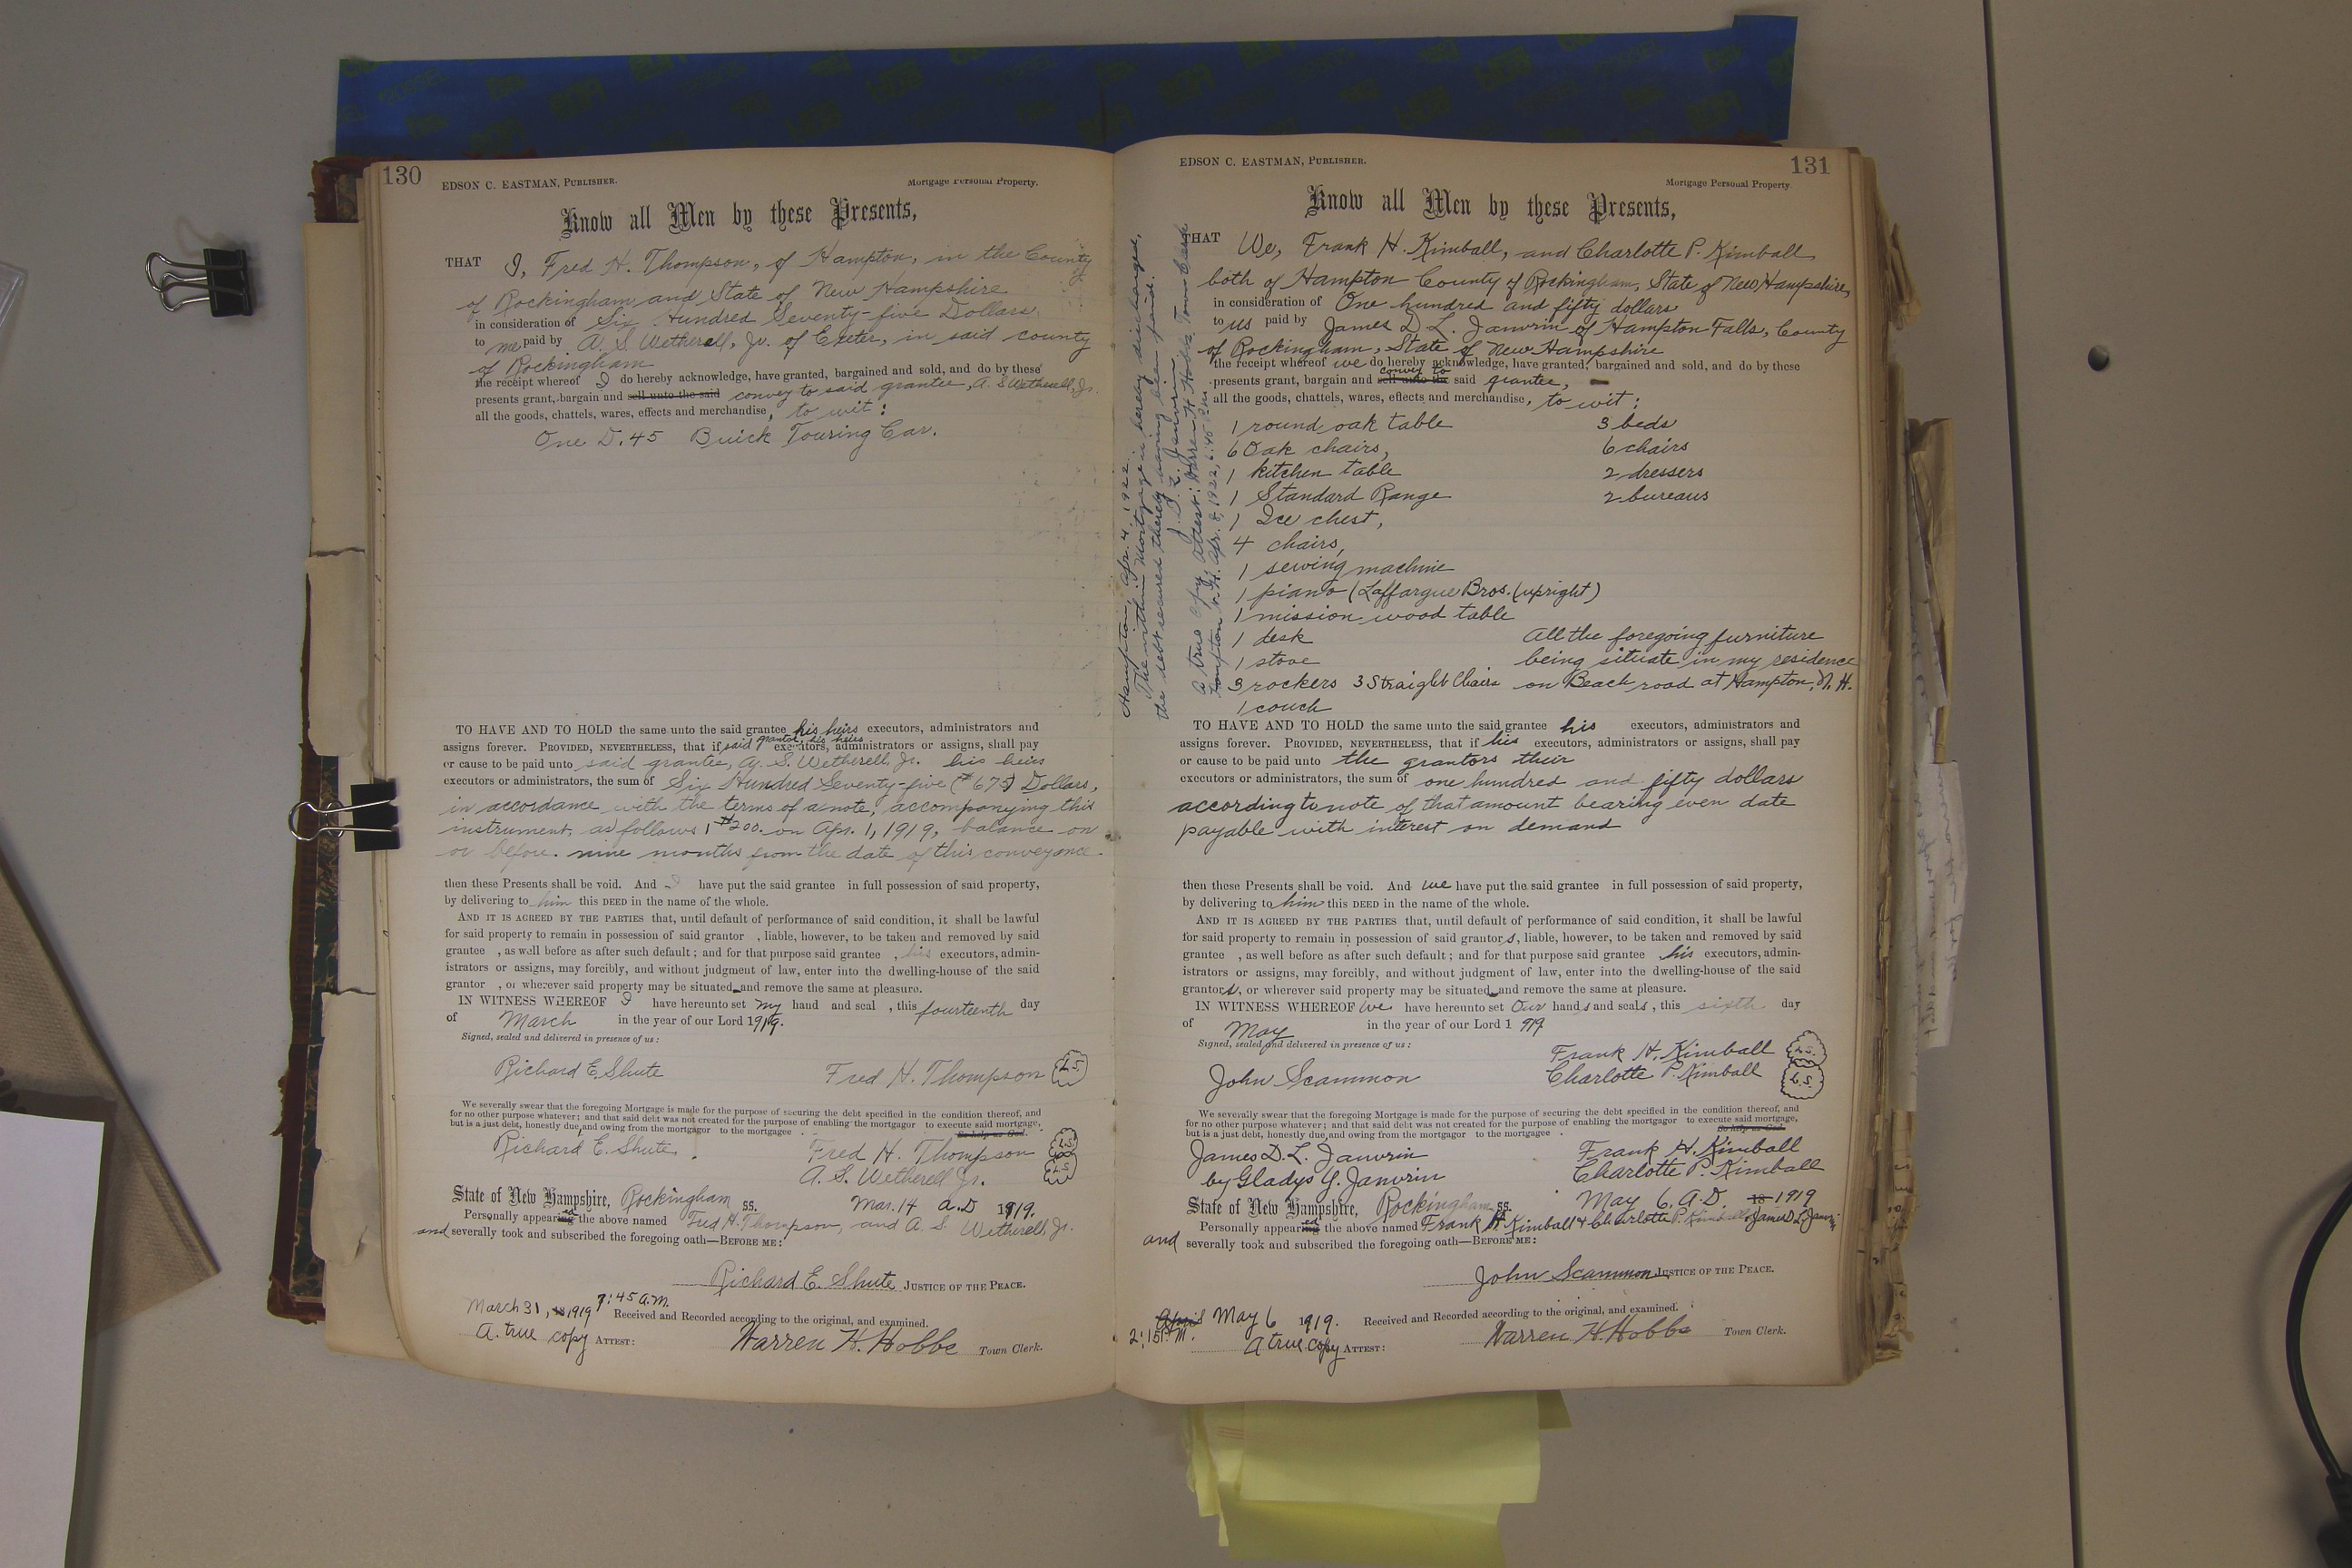 130
EDSON C. EASTMAN, PUBLISHER.
Mortgage Personal Property.
Know all Men by these Presents,
THAT I, Fred H. Thompson, of Hampton, in the County
of Rockingham and State of New Hampshire
in consideration of Six Hundred Seventy-five Dollars
to me paid by A. S. Wetherell, Jr. of Exeter, in said county
of Rockingham
the receipt whereof I do hereby acknowledge, have granted, bargained and sold, and do by these
presents grant, bargain and sell unto the said convey to said grantee, A. S. Wetherell, Jr.
all the goods, chattels, wares, effects and merchandise, to wit:
One D. 45 Buick Touring Car.
TO HAVE AND TO HOLD the same unto the said grantee his heirs executors, administrators and
assigns forever. PROVIDED, NEVERTHELESS, that if said grantor, his heirs executors, administrators or assigns, shall pay
or cause to be paid unto said grantee, A. S. Wetherell, Jr. his heirs
executors or administrators, the sum of Six Hundred Seventy-five ($675) Dollars,
in accordance with the terms of a note, accompanying this
instrument, as follows, $200. on Apr. 1, 1919, balance on
or before nine months from the date of this conveyance.
then these Presents shall be void. And I have put the said grantee in full possession of said property,
by delivering to him this DEED in the name of the whole.
AND IT IS AGREED BY THE PARTIES that, until default of performance of said condition, it shall be lawful
for said property to remain in possession of said grantor , liable, however, to be taken and removed by said
grantee , as well before as after such default; and for that purpose said grantee , his executors, admin-
istrators or assigns, may forcibly, and without judgment of law, enter into the dwelling-house of the said
grantor , or wherever said property may be situated and remove the same at pleasure.
IN WITNESS WHEREOF I have hereunto set my hand and seal , this fourteenth day
of March in the year of our Lord 1919.
Signed, sealed and delivered in presence of us:
Richard E. Shute Fred H. Thompson L.S.
We severally swear that the foregoing Mortgage is made for the purpose of securing the debt specified in the condition thereof, and
for no other purpose whatever; and that said debt was not created for the purpose of enabling the mortgagor to execute said mortgage,
but is a just debt, honestly due and owing from the mortgagor to the mortgagee . So help us God.
Richard E. Shute. Fred H. Thompson L.S.
A. S. Wetherell Jr. L.S.
State of New Hampshire, Rockingham ss. Mar. 14 A.D 1919.
Personally appeared the above named Fred H. Thompson, and A. S. Wetherell, Jr.
and severally took and subscribed the foregoing oath—BEFORE ME:
Richard E. Shute JUSTICE OF THE PEACE.
March 31, 1919 7:45 A.M. Received and Recorded according to the original, and examined.
A true copy ATTEST: Warren H. Hobbs Town Clerk.
131
EDSON C. EASTMAN, PUBLISHER.
Mortgage Personal Property
Know all Men by these Presents,
THAT We, Frank H. Kimball, and Charlotte P. Kimball
both of Hampton County of Rockingham, State of New Hampshire,
in consideration of One hundred and fifty dollars
to us paid by James D. L. Janvrin of Hampton Falls, County
of Rockingham, State of New Hampshire
the receipt whereof we do hereby acknowledge, have granted, bargained and sold, and do by these
presents grant, bargain and sell unto the convey to said grantee,
all the goods, chattels, wares, effects and merchandise, to wit:
1 round oak table 3 beds
6 Oak chairs, 6 chairs
1 kitchen table 2 dressers
1 Standard Range 2 bureaus
1 Ice chest,
4 chairs,
1 sewing machine
1 piano (Laffargue Bros. (upright)
1 mission wood table
1 desk All the foregoing furniture
1 stove being situate in my residence
3 rockers 3 Straight Chairs on Beach road at Hampton, N. H.
1 couch
Hampton, Apr. 4, 1922.
The within Mortgage is hereby discharged,
the debt secured thereby having been paid.
J. D. L. Janvrin
A true copy Attest: Warren H. Hobbs, Town Clerk
Hampton N. H. Apr. 8, 1922, 6:45 P.M.
TO HAVE AND TO HOLD the same unto the said grantee his executors, administrators and
assigns forever. PROVIDED, NEVERTHELESS, that if his executors, administrators or assigns, shall pay
or cause to be paid unto the grantors their
executors or administrators, the sum of one hundred and fifty dollars
according to note of that amount bearing even date
payable with interest on demand
then these Presents shall be void. And we have put the said grantee in full possession of said property,
by delivering to him this DEED in the name of the whole.
AND IT IS AGREED BY THE PARTIES that, until default of performance of said condition, it shall be lawful
for said property to remain in possession of said grantors, liable, however, to be taken and removed by said
grantee , as well before as after such default; and for that purpose said grantee his executors, admin-
istrators or assigns, may forcibly, and without judgment of law, enter into the dwelling-house of the said
grantors, or wherever said property may be situated and remove the same at pleasure.
IN WITNESS WHEREOF We have hereunto set Our hands and seals, this sixth day
of May in the year of our Lord 1919
Signed, sealed and delivered in presence of us:
Frank H. Kimball L.S.
John Scammon Charlotte P. Kimball L.S.
We severally swear that the foregoing Mortgage is made for the purpose of securing the debt specified in the condition thereof, and
for no other purpose whatever; and that said debt was not created for the purpose of enabling the mortgagor to execute said mortgage,
but is a just debt, honestly due and owing from the mortgagor to the mortgagee . So help us God.
James D. L. Janvrin Frank H. Kimball
by Gladys G. Janvrin Charlotte P. Kimball
State of New Hampshire, Rockingham ss. May 6, A.D. 18 1919
Personally appeared the above named Frank H Kimball & Charlotte P. Kimball & James D L Janvrin
and severally took and subscribed the foregoing oath—BEFORE ME:
John Scammon JUSTICE OF THE PEACE.
April May 6 1919. Received and Recorded according to the original, and examined.
2:15 P.M. A true copy ATTEST: Warren H. Hobbs Town Clerk.